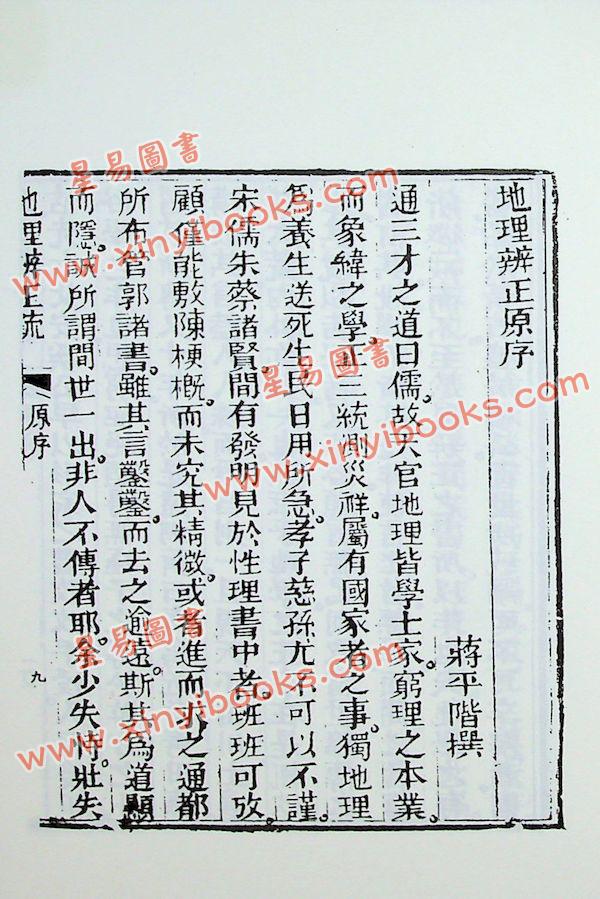 地理辨正原序
蔣平階撰
通三才之道曰儒。故天官地理皆學士家窮理之本業。
而象緯之學。正三統測災祥。屬有國家者之事。獨地理
爲養生送死生民日用所急。孝子慈孫尤不可以不謹。
宋儒朱蔡諸賢間有發明見於性理書中者。班班可攷
顧僅能敷陳梗概。而未究其精微。或者進而求之通都
所布管郭諸書。雖其言鑿鑿。而去之逾遠。斯其為道顯
而隱。誠所謂間世一出。非人不傳者耶。余少失恃。壯失
地理辨正疏
原序
九
星易圖書
www.xinyibooks.com
星易圖書
www.xinyibooks.com
星易圖書
www.xinyibooks.com